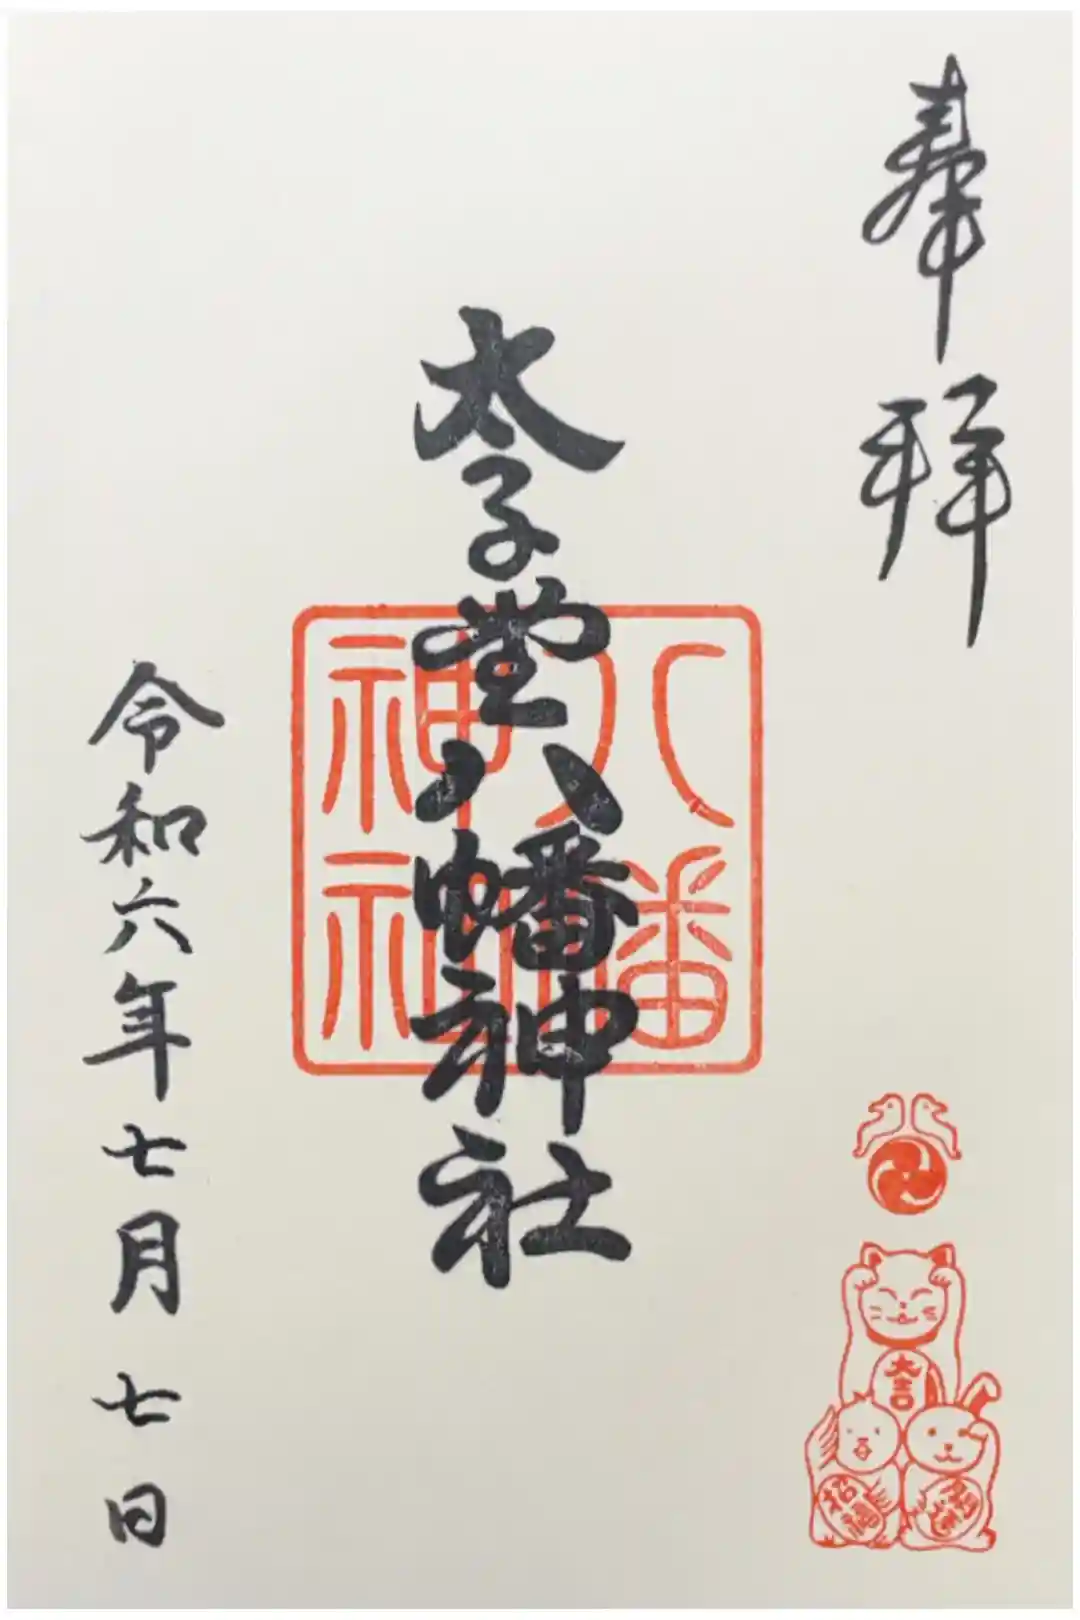 奉拝
太子堂八幡神社
八幡
神社
令和六年七月七日
大吉
招福
開運